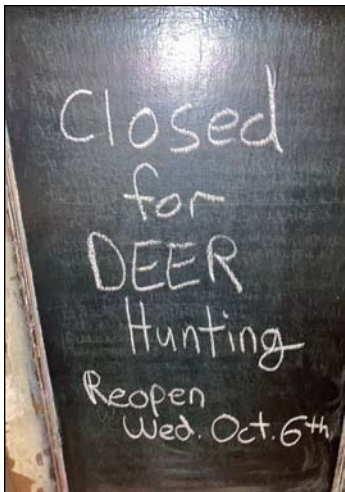 Closed
for
DEER
Hunting
Reopen
Wed. Oct. 6th